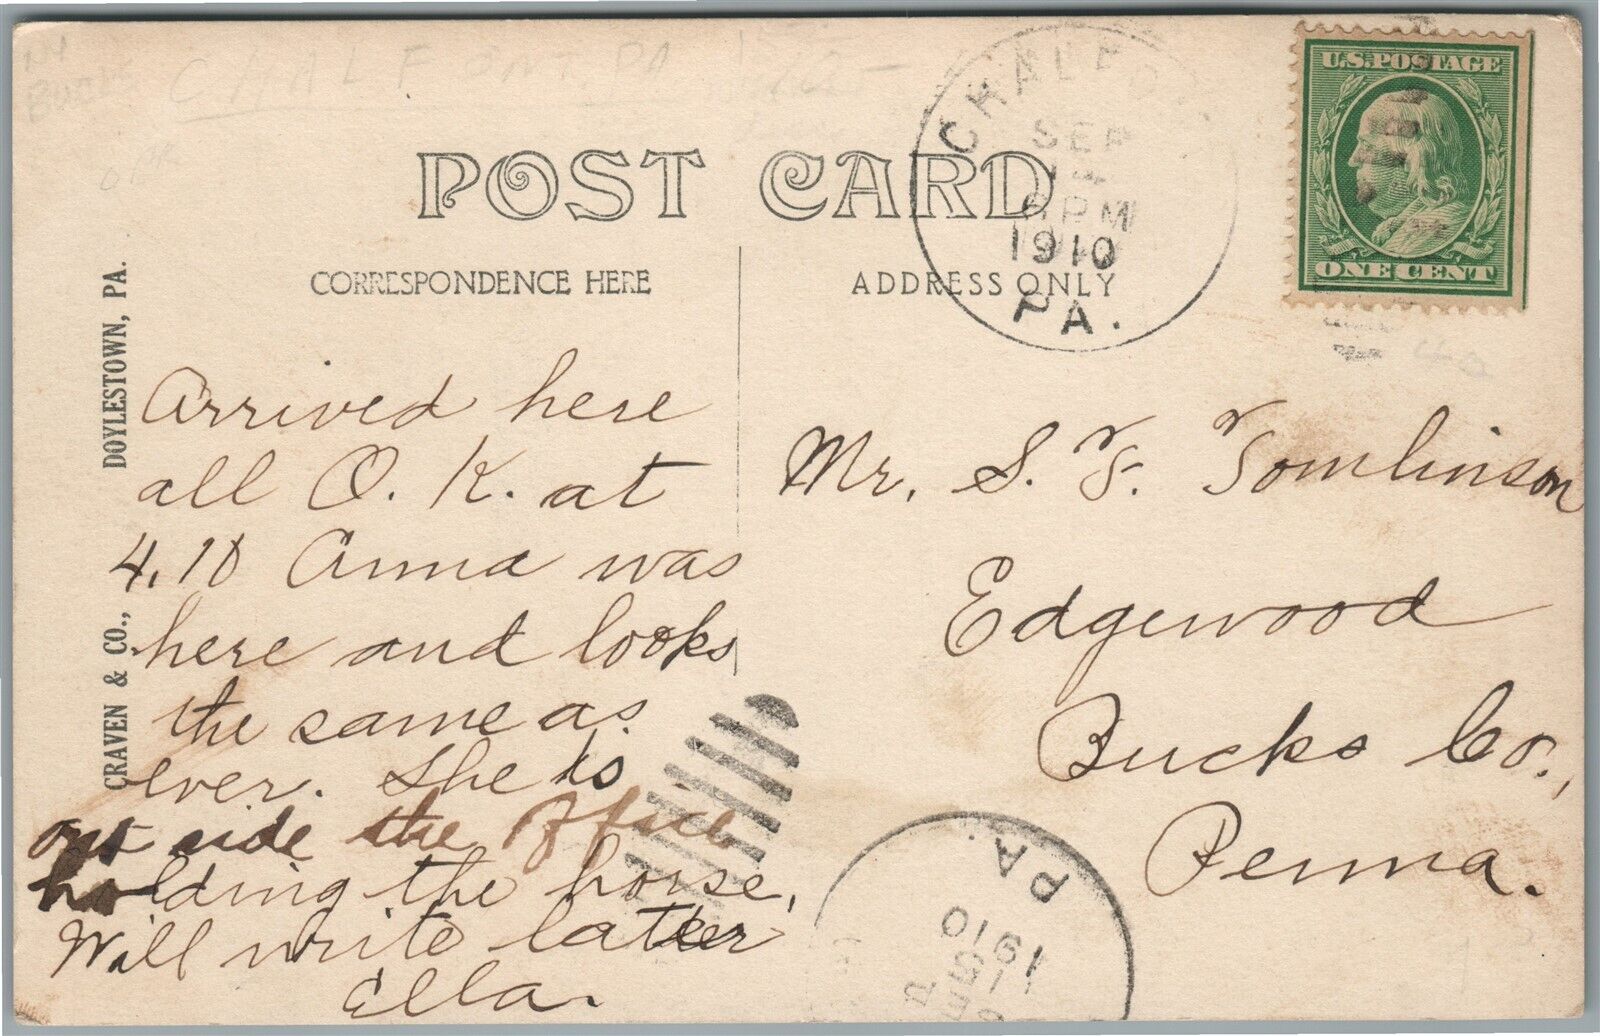 CHALFONT, PA
POST CARD
CORRESPONDENCE HERE
ADDRESS ONLY
CRAVEN & CO., DOYLESTOWN, PA.
CHALFO
SEP
14
6 PM
1910
PA.
U.S. POSTAGE
ONE CENT
Arrived here
all O. K. at
4.10 Anna was
here and looks
the same as
ever. She is
out side the Office
holding the horse,
Will write later
Ella.
Mr. S. F. Tomlinson
Edgewood
Bucks Co.,
Penna.
PA.
1910
SEP